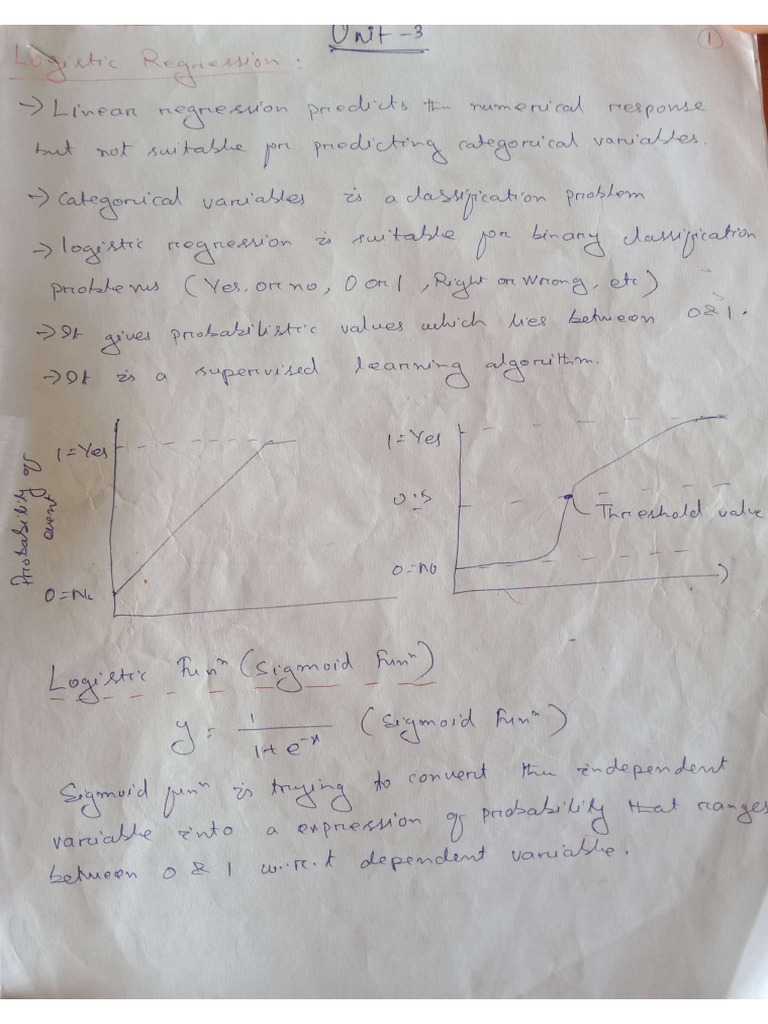 Unit - 3
1
Logistic Regression :
→ Linear regression predicts the numerical response
but not suitable for predicting categorical variables.
→ Categorical variables is a classification problem
→ logistic regression is suitable for binary classification
problems (Yes or no, 0 or 1, Right or Wrong, etc)
→ It gives probabilistic values which lies between 0 & 1.
→ It is a supervised learning algorithm.
Probability of
event
1 = Yes
0 = No
1 = Yes
0.5
Threshold value
0 = No
Logistic Funⁿ (Sigmoid Funⁿ)
y = 1 / 1 + e^-x (Sigmoid Funⁿ)
Sigmoid funⁿ is trying to convert the independent
variable into a expression of probability that ranges
between 0 & 1 w.r.t dependent variable.